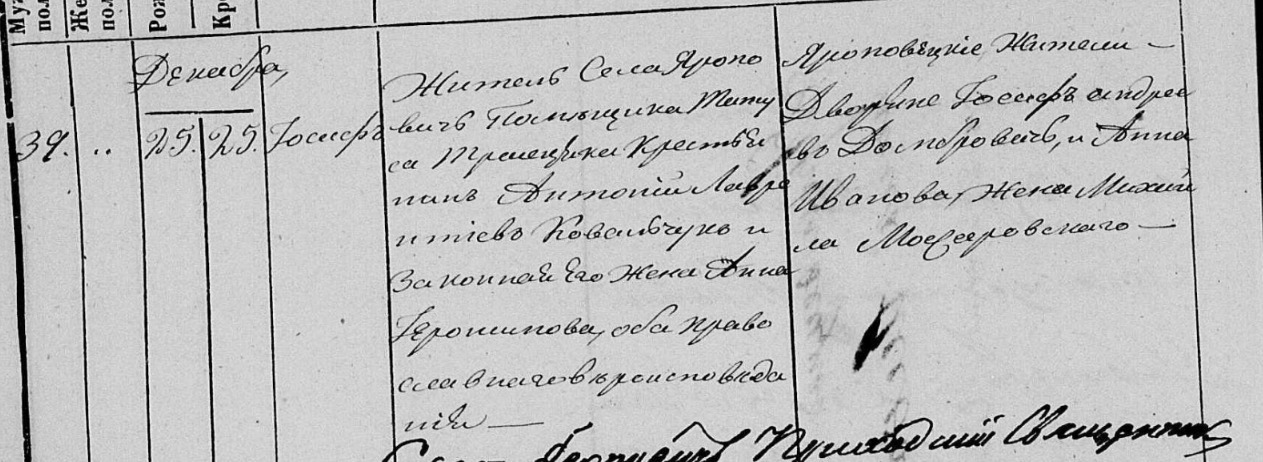 Му
пол
Же
пол
Рож
Кр
Декабря
39. „ 25. 25. Іосифъ
Житель Села Яропо
вичъ Помѣщика
Крестья
нинъ Антоній Лавре
нтіевъ Ковальчукъ и
Законная Его Жена Анна
Іеронимова, оба право
славнаго вѣроисповѣда
нія —
Яроповецкіе Жители —
Дворяне Іосифъ Андрее
въ Домбровичъ, и Анна
Иванова, Жена Михаи
ла —
Приходскій Священникъ